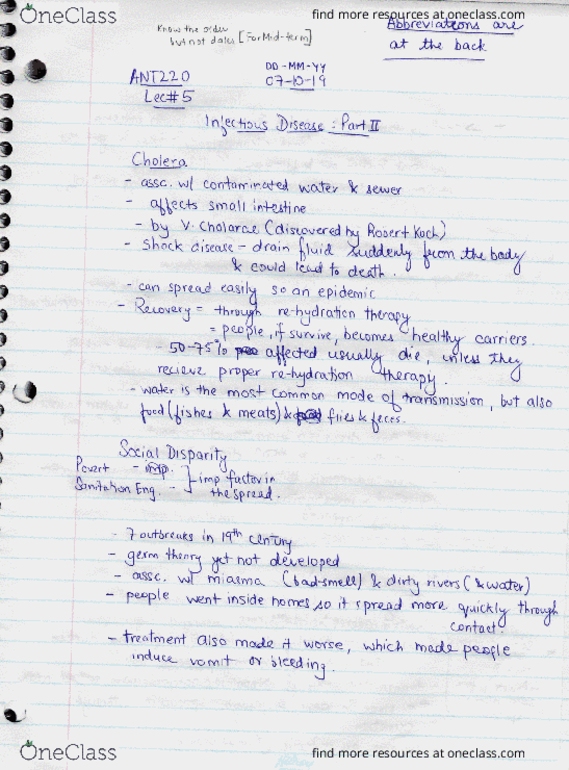 OneClass
find more resources at oneclass.com
Know the order
but not dates [For Mid-term]
Abbreviations are
at the back
ANT220
Lec#5
DD-MM-YY
07-10-19
Infectious Disease: Part II
Cholera
- assc. w/ contaminated water & sewer
- affects small intestine
- by V. Cholarae (discovered by Robert Koch)
- Shock disease - drain fluid suddenly from the body
& could lead to death.
- can spread easily so an epidemic
- Recovery = through re-hydration therapy
= people, if survive, becomes healthy carriers.
50-75% affected usually die, unless they
recieve proper re-hydration therapy.
- water is the most common mode of transmission, but also
food (fishes & meats) & flies & feces.
Social Disparity
Povert - imp.
Sanitation Eng. -
imp factor in
the spread.
- 7 outbreaks in 19th century
- germ theory yet not developed
- assc. w/ miasma (bad-smell) & dirty rivers (& water)
- people went inside homes so it spread more quickly through
contact.
- treatment also made it worse, which made people
induce vomit or bleeding.
OneClass
find more resources at oneclass.com